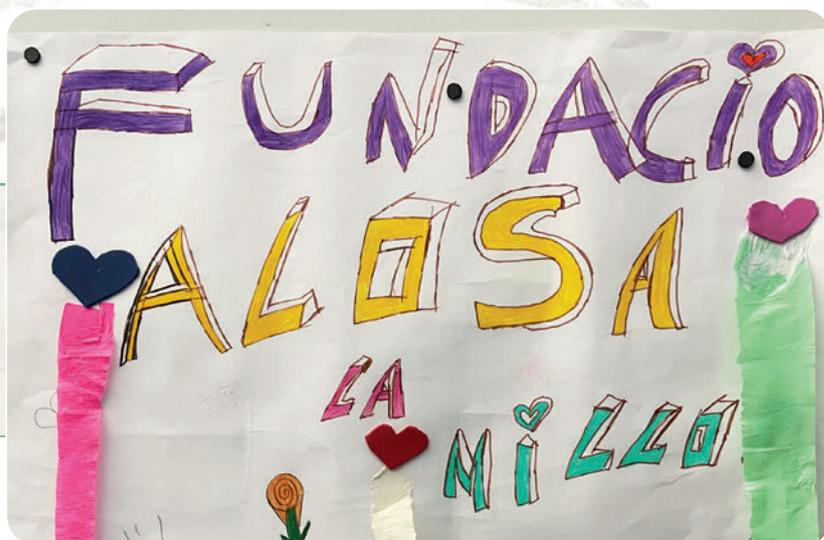 FUNDACIO
ALOSA
LA
MILLO